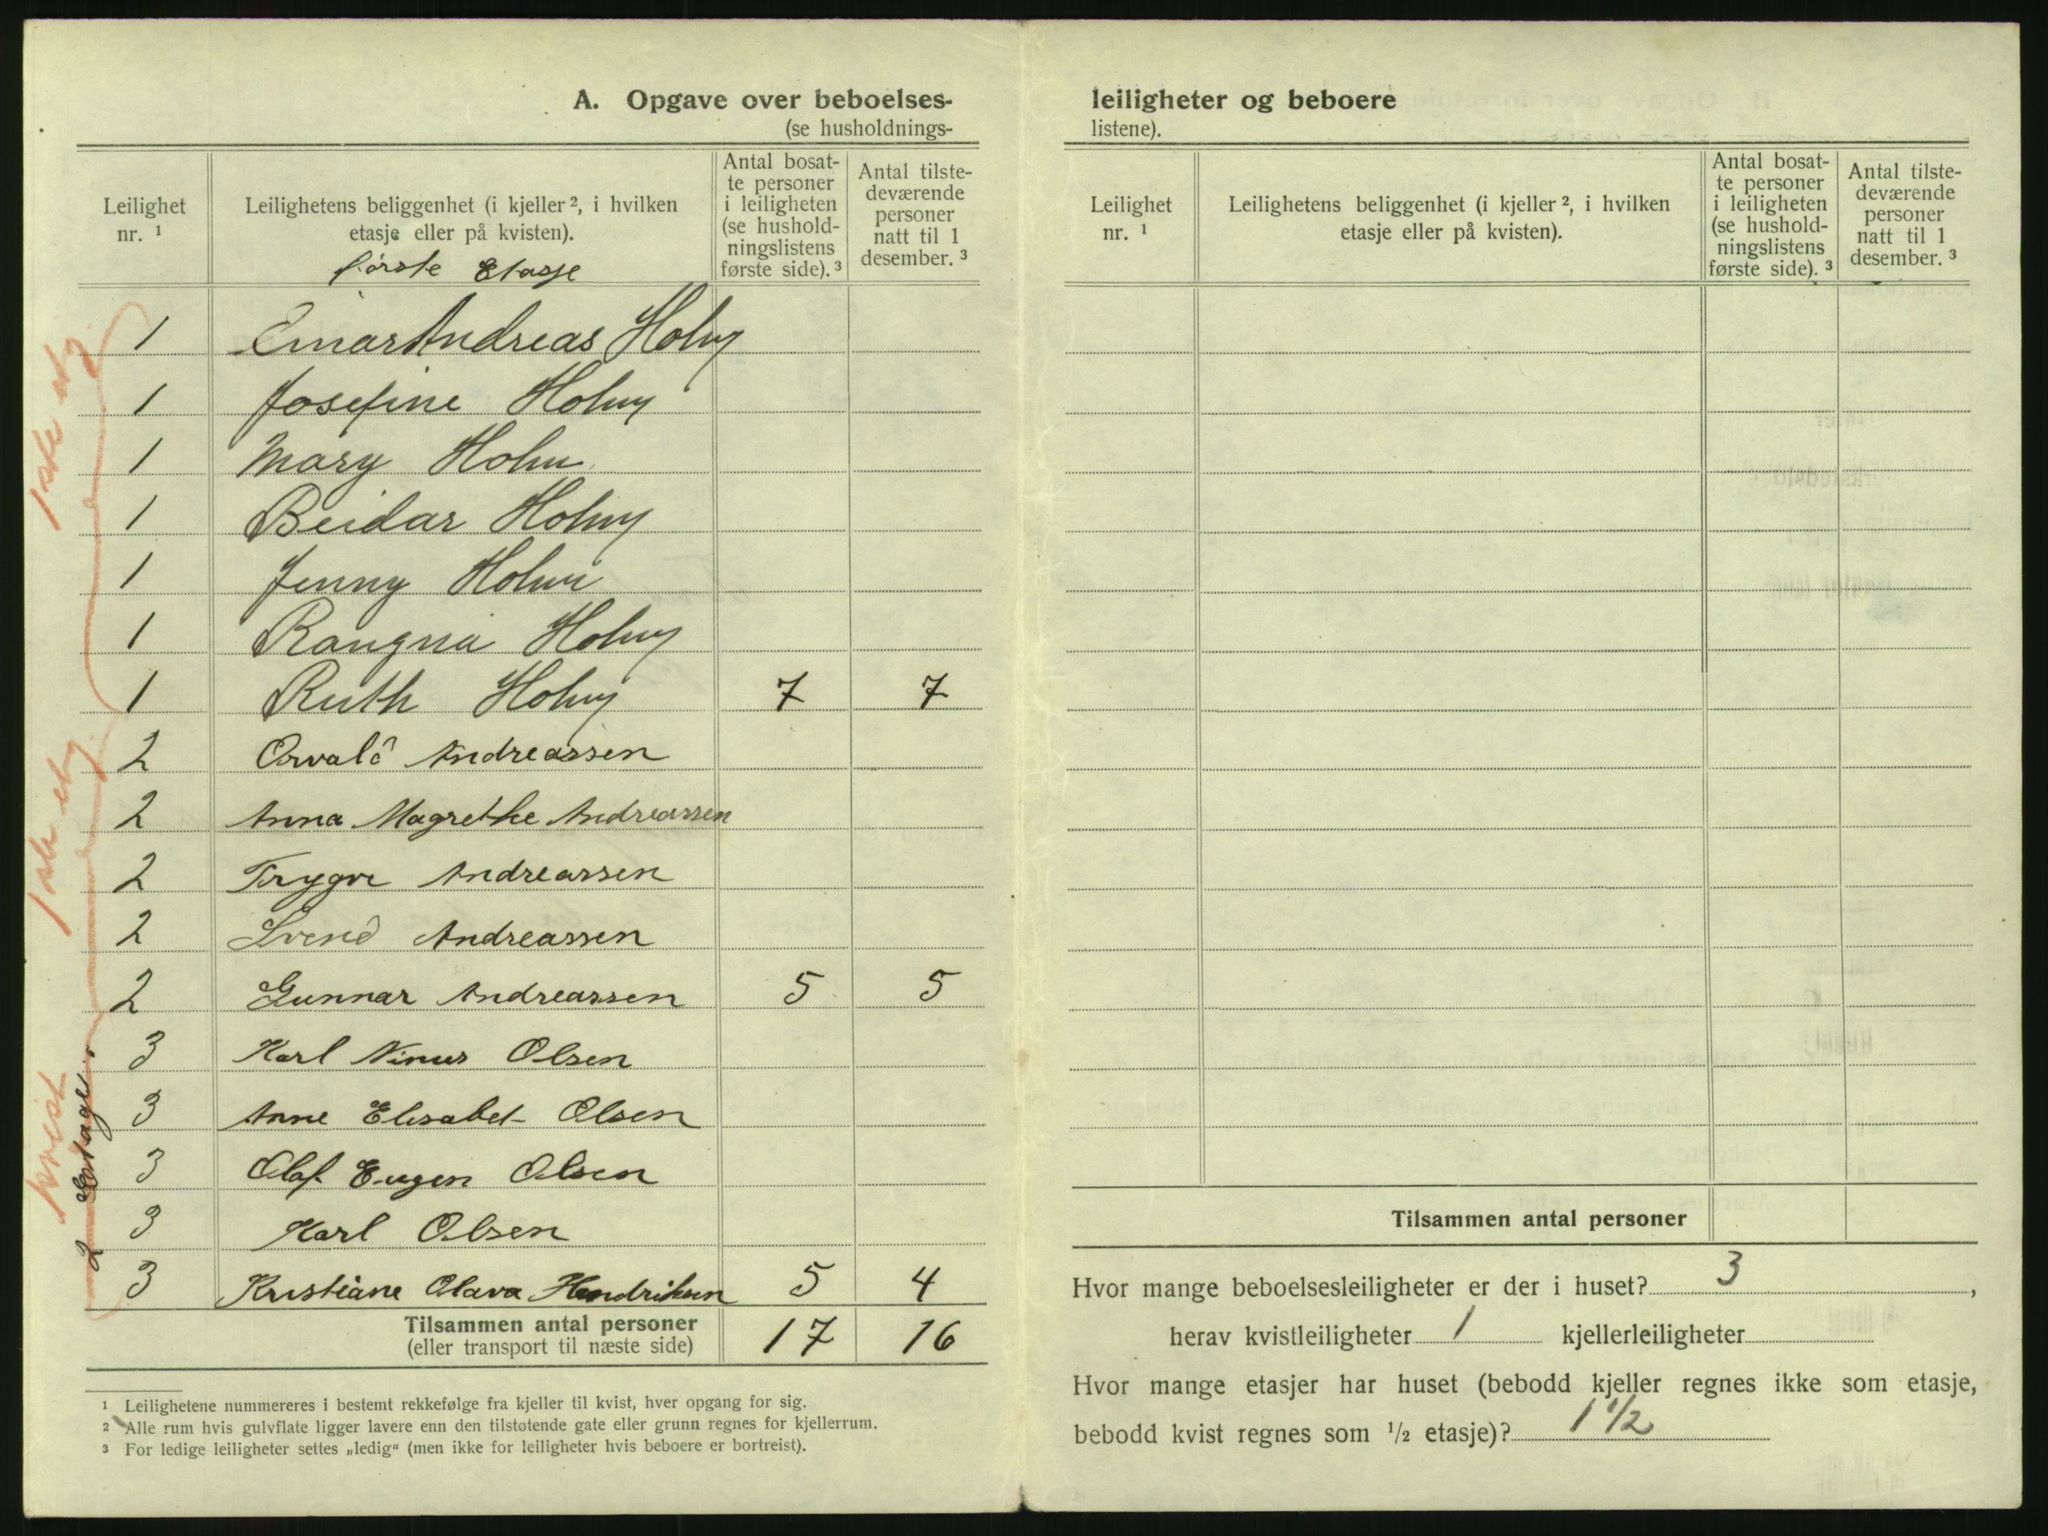 A. Opgave over beboelses-
(se husholdnings-
Leilighet nr. ¹
Leilighetens beliggenhet (i kjeller ², i hvilken etasje eller på kvisten).
Antal bosatte personer i leiligheten (se husholdningslistens første side). ³
Antal tilstedeværende personer natt til 1 desember. ³
første Etasje
1 Einar Andreas Holm
1 Josefine Holm
1 Mary Holm
1 Reidar Holm
1 Jenny Holm
1 Rangna Holm
1 Ruth Holm 7 7
2 Osvald Andreassen
2 Anna Magrethe Andreassen
2 Trygve Andreassen
2 Svend Andreassen
2 Gunnar Andreassen 5 5
3 Karl Ninus Olsen
3 Anne Elisabet Olsen
3 Olaf Eugen Olsen
3 Karl Olsen
3 Kristiane Olava Hendriksen 5 4
Tilsammen antal personer 17 16
(eller transport til næste side)
1ste etg
1ste etg
kvist
2 Etager
¹ Leilighetene nummereres i bestemt rekkefølge fra kjeller til kvist, hver opgang for sig.
² Alle rum hvis gulvflate ligger lavere enn den tilstøtende gate eller grunn regnes for kjellerrum.
³ For ledige leiligheter settes „ledig“ (men ikke for leiligheter hvis beboere er bortreist).
leiligheter og beboere
listene).
Leilighet nr. ¹
Leilighetens beliggenhet (i kjeller ², i hvilken etasje eller på kvisten).
Antal bosatte personer i leiligheten (se husholdningslistens første side). ³
Antal tilstedeværende personer natt til 1 desember. ³
Tilsammen antal personer
Hvor mange beboelsesleiligheter er der i huset? 3 ,
herav kvistleiligheter 1 kjellerleiligheter
Hvor mange etasjer har huset (bebodd kjeller regnes ikke som etasje,
bebodd kvist regnes som ½ etasje)? 1 1/2